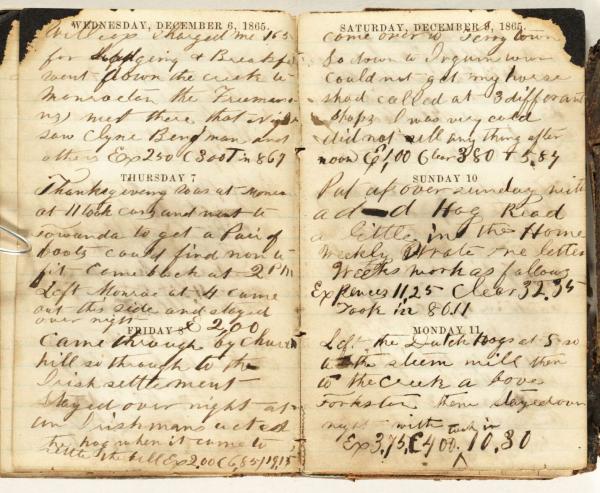 WEDNESDAY, DECEMBER 6, 1865.
charged me 165
for Lodgeing & Breakfst
went down the creek to
Monroeton the Freemasons
met there that
saw Clyne Bergman and
others Ex 250 C 300 T in 867
THURSDAY 7
Thanksgiveing was at Monroe
at 11 took cars and went to
towanda to get a Pair of
boots could find non to
fit Came back at 2 PM
Left Monroe at 4 came
out this side and stayed
over night E 2,00
FRIDAY 8
Came through by Church
hill so through to the
Irish settlement
Stayed over night at
an Irishmans acted
the hog when it come to
settle the bill Ex 2,00 C 6,85
SATURDAY, DECEMBER 9, 1865.
come over to Terrytown
So down to
Could not get my horse
shod called at 3 differant
shops I was very cold
did not sell any thing after
noon E 1,00 Clear 3 80 T 5,84
SUNDAY 10
Put up over sunday with
a d—d Hog Read
a little in the Home
Weekly Wrote one letter
Weeks work as follows
Expences 11,25 Clear 32,35
Took in 86,11
MONDAY 11
Left the Dutch Hogs at 8 so
to the steem mill then
to the Creek a bove
Forkston there stayed over
night with took in
Ex 3,75, C 4,00. 10,30